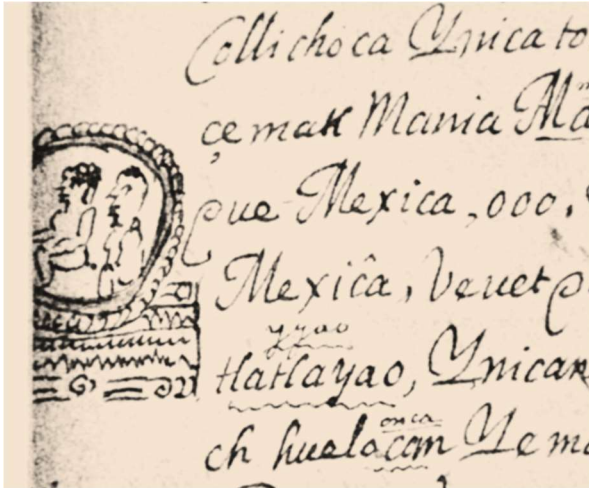 Collichoca Ynica to
çemak Mania Ma
que Mexica, 000.
Mexicâ, Veuet
yyao
tlatlayao, Ynican
onca
ch huelocan Yema